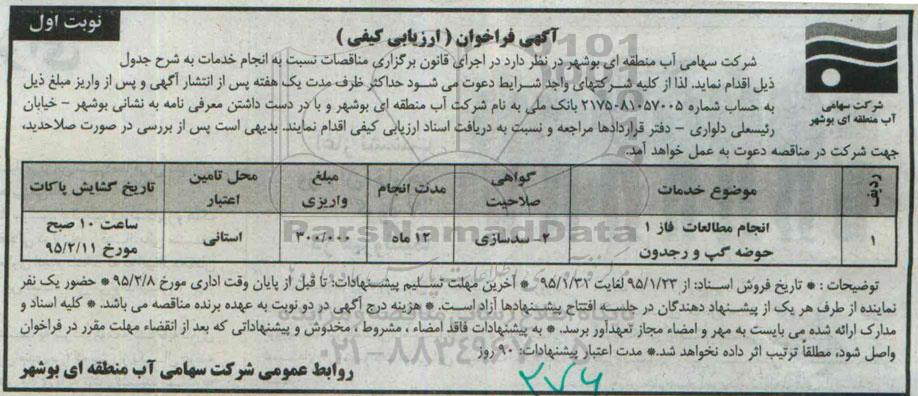 نوبت اول
آگهی فراخوان ( ارزیابی کیفی )
شرکت سهامی
آب منطقه ای بوشهر
شرکت سهامی آب منطقه ای بوشهر در نظر دارد در اجرای قانون برگزاری مناقصات نسبت به انجام خدمات به شرح جدول
ذیل اقدام نماید. لذا از کلیه شرکتهای واجد شرایط دعوت می شود حداکثر ظرف مدت یک هفته پس از انتشار آگهی و پس از واریز مبلغ ذیل
به حساب شماره ۲۱۷۵۰۸۱۰۵۷۰۰۵ بانک ملی به نام شرکت آب منطقه ای بوشهر و با در دست داشتن معرفی نامه به نشانی بوشهر – خیابان
رئیسعلی دلواری – دفتر قراردادها مراجعه و نسبت به دریافت اسناد ارزیابی کیفی اقدام نمایند. بدیهی است پس از بررسی در صورت صلاحدید،
جهت شرکت در مناقصه دعوت به عمل خواهد آمد.
ردیف موضوع خدمات گواهی صلاحیت مدت انجام مبلغ واریزی محل تامین اعتبار تاریخ گشایش پاکات
۱ انجام مطالعات فاز ۱ حوضه گپ و رجدون ۲- سدسازی ۱۲ ماه ۳۰۰/۰۰۰ استانی ساعت ۱۰ صبح مورخ ۹۵/۲/۱۱
ParsNamadData
توضیحات : * تاریخ فروش اسناد: از ۹۵/۱/۲۳ لغایت ۹۵/۱/۳۱ * آخرین مهلت تسلیم پیشنهادات: تا قبل از پایان وقت اداری مورخ ۹۵/۲/۸ * حضور یک نفر
نماینده از طرف هر یک از پیشنهاد دهندگان در جلسه افتتاح پیشنهادها آزاد است. * هزینه درج آگهی در دو نوبت به عهده برنده مناقصه می باشد. * کلیه اسناد و
مدارک ارائه شده می بایست به مهر و امضاء مجاز تعهدآور برسد. * به پیشنهادات فاقد امضاء ، مشروط ، مخدوش و پیشنهاداتی که بعد از انقضاء مهلت مقرر در فراخوان
واصل شود، مطلقاً ترتیب اثر داده نخواهد شد.* مدت اعتبار پیشنهادات: ۹۰ روز
۰۲۱-۸۸۳۴۹۶۷
روابط عمومی شرکت سهامی آب منطقه ای بوشهر
۲۷۶